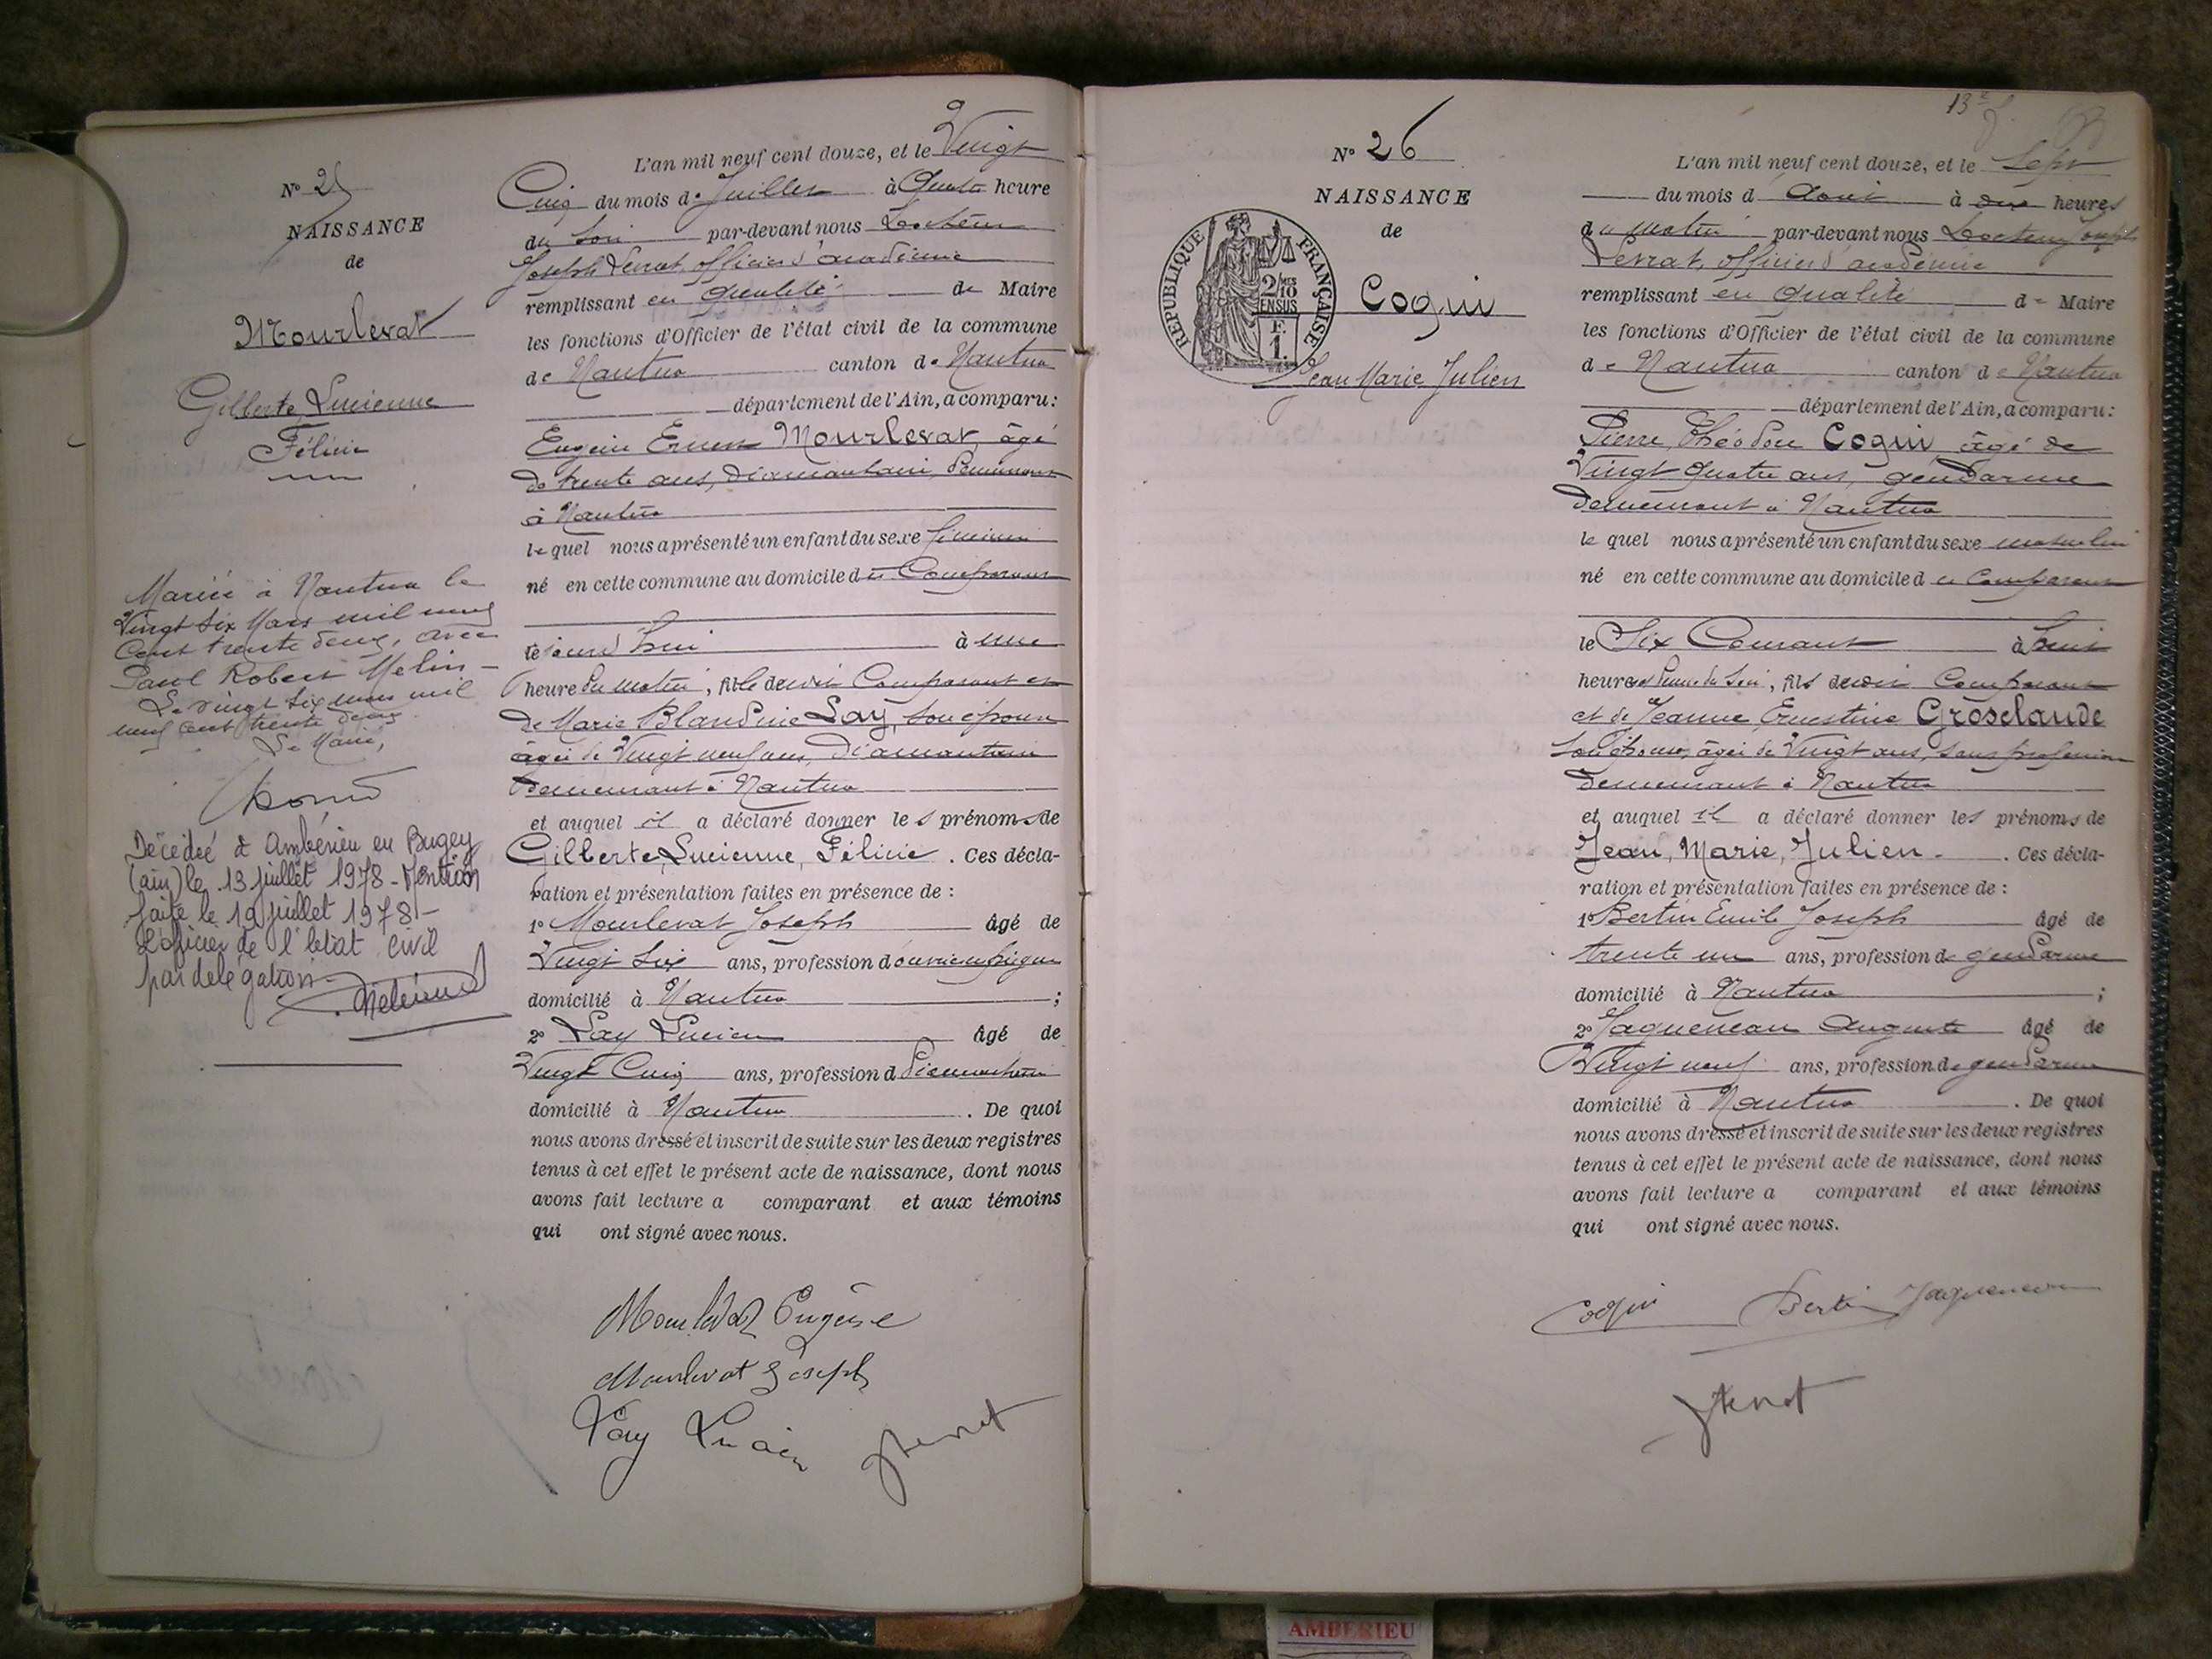 N° 25
NAISSANCE
de
Mourlevat
Gilberte Lucienne
Félicie
Mariée à Nantua le
Vingt six Mars mil neuf
Cent trente deux, avec
Paul Robert Melin -
Le vingt six mars mil
neuf cent trente deux
Le Maire,
Décédée à Ambérieu en Bugey
(ain) le 13 juillet 1978 - Mention
faite le 19 juillet 1978 -
L'officier de l'état civil
par délégation -
L'an mil neuf cent douze, et le Vingt
Cinq du mois de Juillet à Quatre heure
du Soir par-devant nous Docteur
Joseph Levrat, officier d'académie
remplissant en qualité de Maire
les fonctions d'Officier de l'état civil de la commune
de Nantua canton de Nantua
département de l'Ain, a comparu :
Eugène Ernest Mourlevat, âgé
de trente ans, diamantaire, demeurant
à Nantua
lequel nous a présenté un enfant du sexe féminin
né en cette commune au domicile du Comparant
ce jourd'hui à une
heure du matin, fille de lui Comparant et
de Marie Blandine Lay, son épouse
âgée de Vingt neuf ans, diamantaire
demeurant à Nantua
et auquel il a déclaré donner les prénoms de
Gilberte, Lucienne, Félicie. Ces décla-
ration et présentation faites en présence de :
1° Mourlevat Joseph âgé de
Vingt Six ans, profession d'ouvrier
domicilié à Nantua ;
2° Lay Lucien âgé de
Vingt Cinq ans, profession d diamantaire
domicilié à Nantua. De quoi
nous avons dressé et inscrit de suite sur les deux registres
tenus à cet effet le présent acte de naissance, dont nous
avons fait lecture a comparant et aux témoins
qui ont signé avec nous.
Mourlevat Eugène
Mourlevat Joseph
Lay Lucien JLevrat
13e
N° 26
NAISSANCE
de
RÉPUBLIQUE FRANÇAISE
2/10 MES
EN SUS
F.
1.
Coqui
Jean Marie Julien
L'an mil neuf cent douze, et le Sept
du mois d Aout à dix heures
du matin par-devant nous Docteur Joseph
Levrat, officier d'académie
remplissant en qualité de Maire
les fonctions d'Officier de l'état civil de la commune
de Nantua canton de Nantua
département de l'Ain, a comparu :
Pierre, Théodore Coqui âgé de
Vingt quatre ans, gendarme
demeurant à Nantua
lequel nous a présenté un enfant du sexe masculin
né en cette commune au domicile du Comparant
le Six Courant à huit
heures du Soir, fils de lui Comparant
et de Jeanne, Ernestine Groselaude
son épouse, âgée de Vingt ans, sans profession
demeurant à Nantua
et auquel il a déclaré donner les prénoms de
Jean, Marie, Julien. Ces décla-
ration et présentation faites en présence de :
1° Bertin Emile Joseph âgé de
trente un ans, profession de gendarme
domicilié à Nantua ;
2° Jagueneau Auguste âgé de
Vingt neuf ans, profession de gendarme
domicilié à Nantua. De quoi
nous avons dressé et inscrit de suite sur les deux registres
tenus à cet effet le présent acte de naissance, dont nous
avons fait lecture a comparant et aux témoins
qui ont signé avec nous.
Coqui Bertin Jagueneau
JLevrat
AMBERIEU